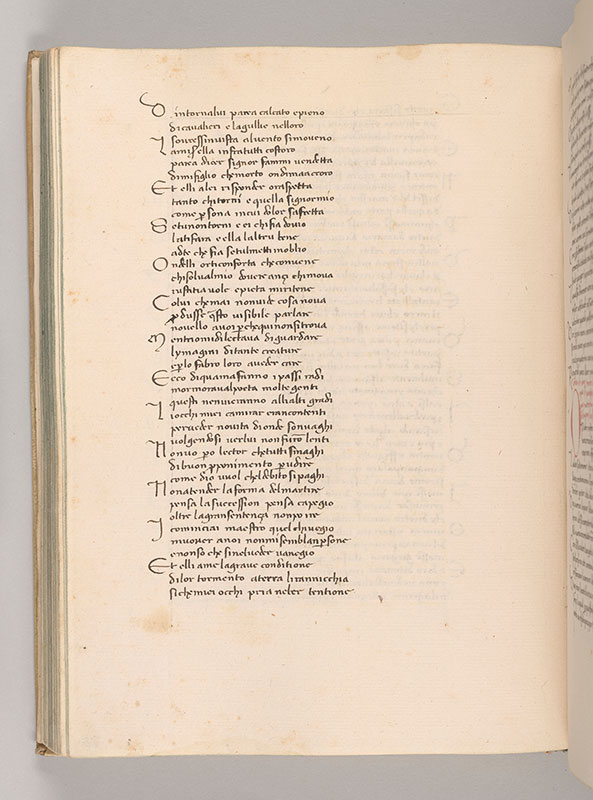 D intornalui parea calcato epieno
di cavalieri e lagullie nelloro
sovressinvista aluento simoveno
L amisella infratutti costoro
parea dicer signor fammi vendetta
dimifiglio chemorto ondimaccoro
Et elli alei risponder oraspetta
tanto chitorni e quella signormio
come psona incui dolor safretta
S etunontorni e ei chifia dovio
latifara e ella laltru bene
adte che fia setulmetti inoblio
O ndelli orticonforta checonvene
chisolvalmio dovere anzi chimova
iustitia vole epieta miritene
C olui chemai nonvide cosa nova
pdusse qsto visibile parlare
novello anoi pchequinonsitrova
M entriomidilectava diguardare
lymagini ditante creature
eplo fabro loro aveder care
E cco diquamafanno i passi radi
mormoravalpoeta molte genti
I questi neniueranno allialti gradi
iocchi miei camirar erancontenti
perveder novita dionde sonvaghi
uolgendosi uerlui nonfuro lenti
N onvo po lector chetutti smaghi
dibuon pponimento pudire
come dio vuol cheldebito sipaghi
N onatender laforma delmartire
pensa lasuccession pensa capegio
oltre lagransentenza nonpo ire
I cominciai maestro quel chivegio
muover anoi nonmisemblanpsone
enonso che sinelveder vanegio
Et elli ame lagrave conditione
dilor tormento aterra lirannicchia
sichemiei occhi pria neber tentione